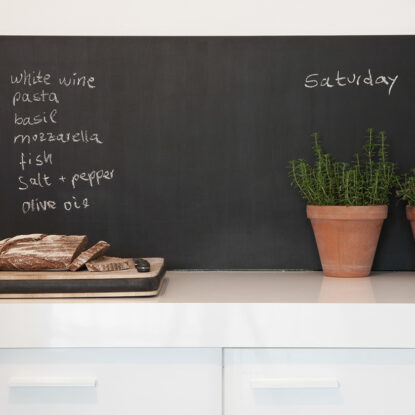 white wine
pasta
basil
mozzarella
fish
salt + pepper
olive oil
Saturday